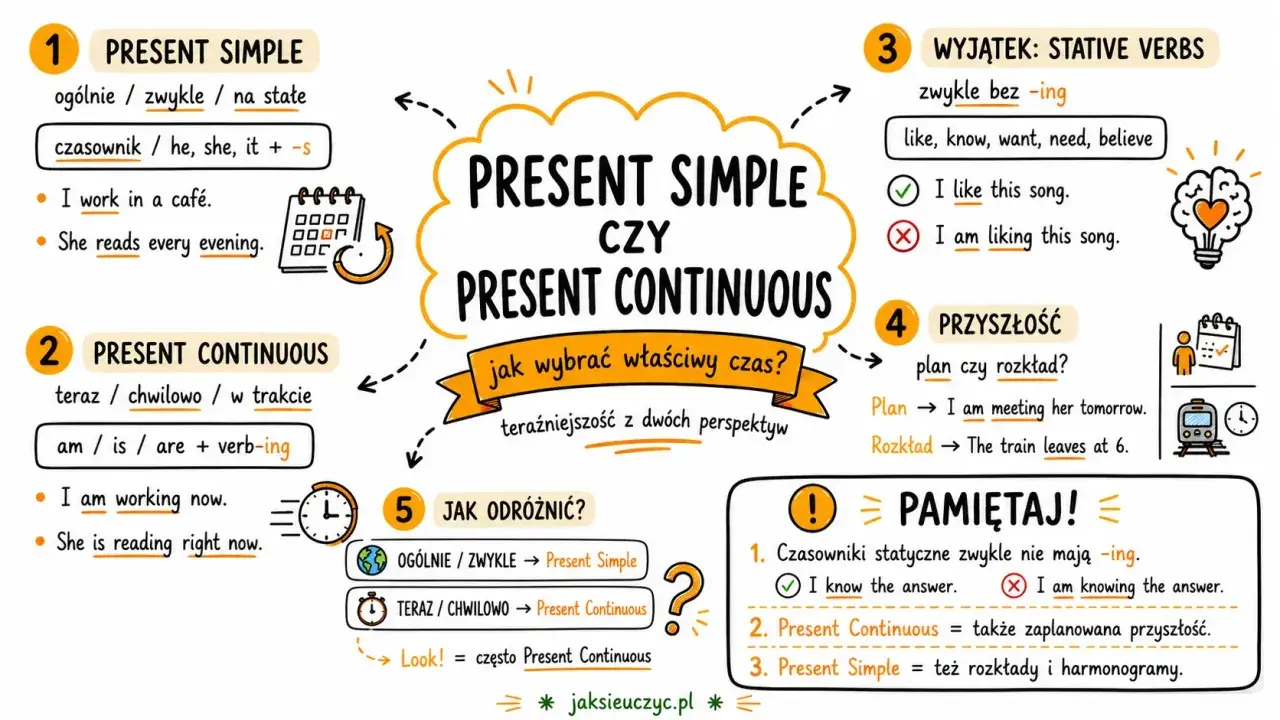 PRESENT SIMPLE
CZY
PRESENT CONTINUOUS
jak wybrać właściwy czas?
teraźniejszość z dwóch perspektyw
1 PRESENT SIMPLE
ogólnie / zwykle / na stałe
czasownik / he, she, it + -s
• I work in a café.
• She reads every evening.
2 PRESENT CONTINUOUS
teraz / chwilowo / w trakcie
am / is / are + verb-ing
• I am working now.
• She is reading right now.
3 WYJĄTEK: STATIVE VERBS
zwykle bez -ing
like, know, want, need, believe
I like this song.
I am liking this song.
4 PRZYSZŁOŚĆ
plan czy rozkład?
Plan → I am meeting her tomorrow.
Rozkład → The train leaves at 6.
5 JAK ODRÓŻNIĆ?
OGÓLNIE / ZWYKLE → Present Simple
TERAZ / CHWILOWO → Present Continuous
Look! = często Present Continuous
! PAMIĘTAJ!
1. Czasowniki statyczne zwykle nie mają -ing.
I know the answer. I am knowing the answer.
2. Present Continuous = także zaplanowana przyszłość.
3. Present Simple = też rozkłady i harmonogramy.
jaksieuczyc.pl